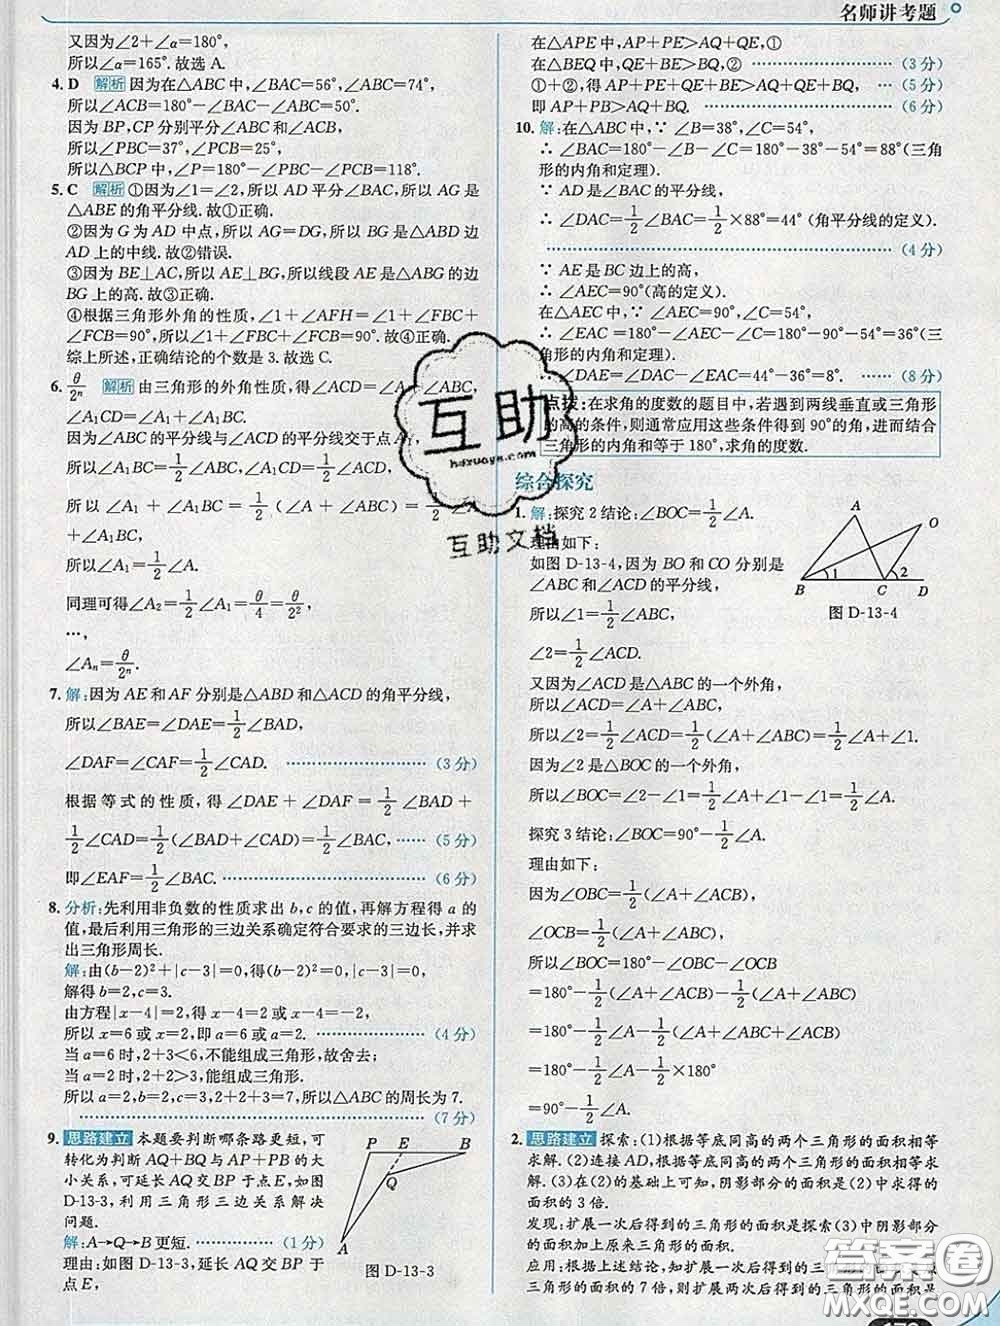 名师讲考题
又因为∠2+∠α=180°,
所以∠α=165°.故选 A.
4. D 解析 因为在△ABC中,∠BAC=56°,∠ABC=74°,
所以∠ACB=180°-∠BAC-∠ABC=50°.
因为 BP,CP 分别平分∠ABC 和∠ACB,
所以∠PBC=37°,∠PCB=25°,
所以△BCP中,∠P=180°-∠PBC-∠PCB=118°.
5. C 解析 ①因为∠1=∠2,所以 AD 平分∠BAC,所以 AG 是
△ABE 的角平分线.故①正确.
②因为 G 为 AD 中点,所以 AG=DG,所以 BG 是△ABD 边
AD 上的中线.故②错误.
③因为 BE⊥AC,所以 AE⊥BG,所以线段 AE 是△ABG 的边
BG 上的高.故③正确.
④根据三角形外角的性质,∠1+∠AFH=∠FBC+∠FCB,
∠FCB=90°,所以∠1+∠FBC+∠FCB=90°.故④正确.
综上所述,正确结论的个数是 3.故选 C.
6. θ/2ⁿ 解析 由三角形的外角性质,得∠ACD=∠A+∠ABC,
∠A₁CD=∠A₁+∠A₁BC.
因为∠ABC 的平分线与∠ACD 的平分线交于点 A₁,
所以∠A₁BC=1/2∠ABC,∠A₁CD=1/2∠ACD,
所以∠A₁+∠A₁BC=1/2∠ACD=1/2∠A
+∠A₁BC,
所以∠A₁=1/2∠A.
同理可得∠A₂=1/2∠A₁=θ/4=θ/2²,
…,
∠Aₙ=θ/2ⁿ.
7. 解:因为 AE 和 AF 分别是△ABD 和△ACD 的角平分线,
所以∠BAE=∠DAE=1/2∠BAD,
∠DAF=∠CAF=1/2∠CAD. …… (3 分)
根据等式的性质,得∠DAE+∠DAF=1/2∠BAD+
1/2∠CAD=1/2(∠BAD+∠CAD)=1/2∠BAC, …… (5 分)
即∠EAF=1/2∠BAC. …… (6 分)
8. 分析:先利用非负数的性质求出 b,c 的值,再解方程得 a 的
值,最后利用三角形的三边关系确定符合要求的三边长,并求
出三角形周长.
解:由(b-2)²+|c-3|=0,得(b-2)²=0,|c-3|=0,
解得 b=2,c=3.
由方程|x-4|=2,得 x-4=2 或 x-4=-2,
所以 x=6 或 x=2,即 a=6 或 a=2. …… (4 分)
当 a=6 时,2+3<6,不能组成三角形,故舍去;
当 a=2 时,2+2>3,能组成三角形.
所以 a=2,b=2,c=3,2+2+3=7,所以△ABC 的周长为 7.
…… (7 分)
9. 思路建立 本题要判断哪条路更短,可
转化为判断 AQ+BQ 与 AP+PB 的
大小关系,可延长 AQ 交 BP 于点 E,如图
D-13-3,利用三角形三边关系解决
问题.
解:A→Q→B 更短. …… (1 分)
理由:如图 D-13-3,延长 AQ 交 BP 于
点 E,
P E B
Q
A
图 D-13-3
在△APE 中,AP+PE>AQ+QE,①
在△BEQ 中,QE+BE>BQ,② …… (3 分)
①+②,得 AP+PE+QE+BE>AQ+QE+BQ, …… (5 分)
即 AP+PB>AQ+BQ. …… (6 分)
10. 解:在△ABC 中,∵ ∠B=38°,∠C=54°,
∴ ∠BAC=180°-∠B-∠C=180°-38°-54°=88°(三角
形的内角和定理).
∵ AD 是∠BAC 的平分线,
∴ ∠DAC=1/2∠BAC=1/2×88°=44° (角平分线的定义).
…… (4 分)
∵ AE 是 BC 边上的高,
∴ ∠AEC=90°(高的定义).
在△AEC 中,
∴ ∠EAC =180°-∠AEC-∠C=180°-90°-54°=36°(三
角形的内角和定理).
∴ ∠DAE=∠DAC-∠EAC=44°-36°=8°. …… (8 分)
点拨:在求角的度数的题目中,若遇到两线垂直或三角形
的高的条件,则通常应用这些条件得到 90°的角,进而结合
三角形的内角和等于 180°,求角的度数.
综合探究
1. 解:探究 2 结论:∠BOC=1/2∠A.
理由如下:
如图 D-13-4,因为 BO 和 CO 分别是
∠ABC 和∠ACD 的平分线,
所以∠1=1/2∠ABC,
∠2=1/2∠ACD.
A O
1 2
B C D
图 D-13-4
又因为∠ACD 是△ABC 的一个外角,
所以∠ACD=∠A+∠ABC,
所以∠2=1/2∠ACD=1/2(∠A+∠ABC)=1/2∠A+∠1.
因为∠2 是△BOC 的一个外角,
所以∠BOC=∠2-∠1=1/2∠A+∠1-∠1=1/2∠A.
探究 3 结论:∠BOC=90°-1/2∠A.
理由如下:
因为∠OBC=1/2(∠A+∠ACB),
∠OCB=1/2(∠A+∠ABC),
所以∠BOC=180°-∠OBC-∠OCB
=180°-1/2(∠A+∠ACB)-1/2(∠A+∠ABC)
=180°-1/2∠A-1/2(∠A+∠ABC+∠ACB)
=180°-1/2∠A-1/2×180°
=90°-1/2∠A.
2. 思路建立 探索:(1)根据等底同高的两个三角形的面积相等
求解.(2)连接 AD,根据等底同高的两个三角形的面积相等
求解.(3)在(2)的基础上可知,阴影部分的面积是(2)中求得
的面积的 3 倍.
发现:扩展一次后得到的三角形的面积是探索(3)中阴影部分
的面积加上原来三角形的面积.
应用:根据上述结论,知扩展一次后得到的三角形的面积是原
三角形的面积的 7 倍,则扩展两次后得到的三角形的面积是
互助
huzuoya.com
互助文档
答案圈
MXQE.COM